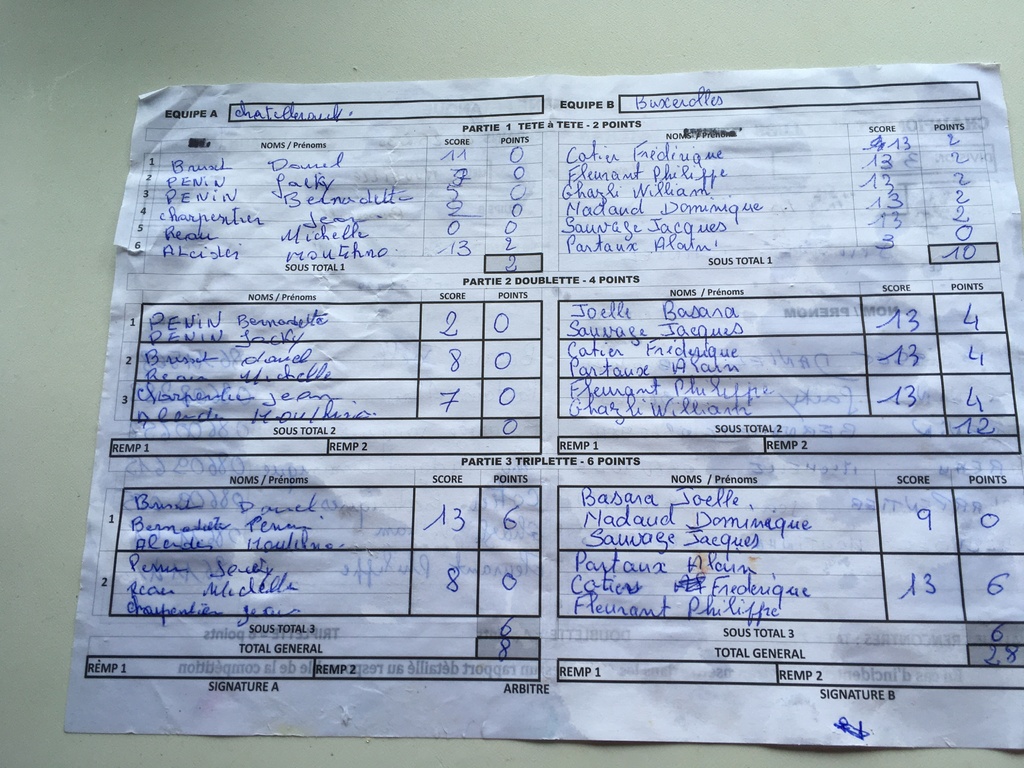 EQUIPE A Chatellerault. EQUIPE B Buxerolles
PARTIE 1 TETE à TETE - 2 POINTS
NOMS / Prénoms SCORE POINTS NOMS / Prénoms SCORE POINTS
1 Bruset Daniel 11 0 Catier Frédérique 13 2
2 PENIN Jacky 7 0 Fleurant Philippe 13 2
3 PENIN Bernadette 5 0 Gharli William 13 2
4 charpentier Jean 2 0 Nadaud Dominique 13 2
5 Reau Michelle 0 0 Sauvage Jacques 13 2
6 13 2 Partaux Alain 3 0
SOUS TOTAL 1 2 SOUS TOTAL 1 10
PARTIE 2 DOUBLETTE - 4 POINTS
NOMS / Prénoms SCORE POINTS NOMS / Prénoms SCORE POINTS
1 PENIN Bernadette 2 0 Joelle Basara 13 4
PENIN Jacky Sauvage Jacques
2 Bruset Daniel 8 0 Catier Frédérique 13 4
Reau Michelle Partaux Alain
3 Charpentier Jean 7 0 Fleurant Philippe 13 4
Gharli William
SOUS TOTAL 2 0 SOUS TOTAL 2 12
REMP 1 REMP 2 REMP 1 REMP 2
PARTIE 3 TRIPLETTE - 6 POINTS
NOMS / Prénoms SCORE POINTS NOMS / Prénoms SCORE POINTS
1 Bruset Daniel 13 6 Basara Joelle 9 0
Bernadette Penin Nadaud Dominique
Sauvage Jacques
2 Penin Jacky 8 0 Partaux Alain 13 6
Reau Michelle Catier Frédérique
charpentier Jean Fleurant Philippe
SOUS TOTAL 3 6 SOUS TOTAL 3 6
TOTAL GENERAL 8 TOTAL GENERAL 28
REMP 1 REMP 2 REMP 1 REMP 2
SIGNATURE A ARBITRE SIGNATURE B